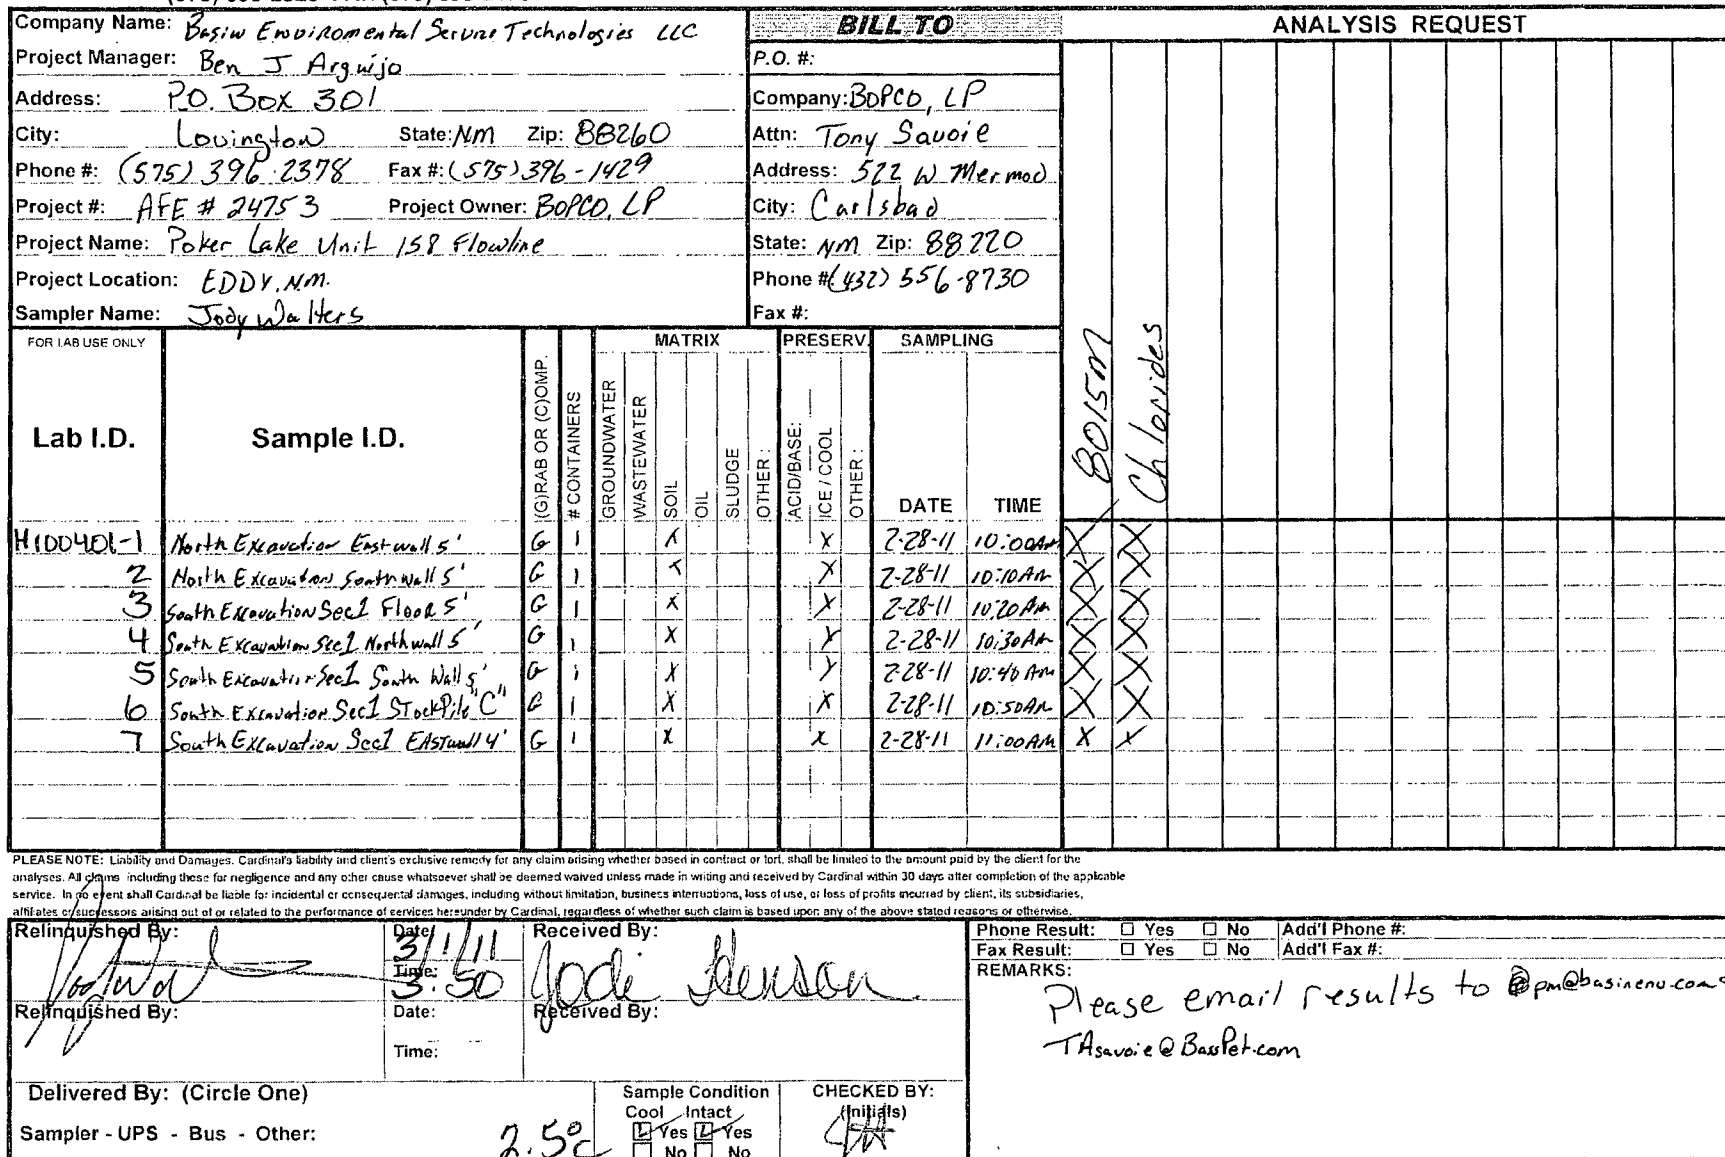 Company Name: Basin Enviromental Service Technologies LLC
Project Manager: Ben J Arguijo
Address: P.O. Box 301
City: Lovington State: NM Zip: 88260
Phone #: (575) 396-2378 Fax #: (575) 396-1429
Project #: AFE # 24753 Project Owner: BOPCO, LP
Project Name: Poker Lake Unit 158 Flowline
Project Location: EDDY, N.M.
Sampler Name: Jody Walters
BILL TO
P.O. #:
Company: BOPCO, LP
Attn: Tony Savoie
Address: 522 W Mermod
City: Carlsbad
State: NM Zip: 88220
Phone # (432) 556-8730
Fax #:
ANALYSIS REQUEST
FOR LAB USE ONLY
Lab I.D.
Sample I.D.
(G)RAB OR (C)OMP.
# CONTAINERS
MATRIX
GROUNDWATER
WASTEWATER
SOIL
OIL
SLUDGE
OTHER :
PRESERV.
ACID/BASE:
ICE / COOL
OTHER :
SAMPLING
DATE TIME
8015M
Chlorides
H100401-1 North Excavation East wall 5' G 1 X X 2-28-11 10:00AM X X
2 North Excavation South wall 5' G 1 X X 2-28-11 10:10AM X X
3 South Excavation Sec1 Floor 5' G 1 X X 2-28-11 10:20AM X X
4 South Excavation Sec1 North wall 5' G 1 X X 2-28-11 10:30AM X X
5 South Excavation Sec1 South Wall 5' G 1 X X 2-28-11 10:40AM X X
6 South Excavation Sec1 StockPile "C" 1 X X 2-28-11 10:50AM X X
7 South Excavation Sec1 EAST wall 4' G 1 X X 2-28-11 11:00AM X X
PLEASE NOTE: Liability and Damages. Cardinal's liability and client's exclusive remedy for any claim arising whether based in contract or tort, shall be limited to the amount paid by the client for the
analyses. All claims including those for negligence and any other cause whatsoever shall be deemed waived unless made in writing and received by Cardinal within 30 days after completion of the applicable
service. In no event shall Cardinal be liable for incidental or consequental damages, including without limitation, business interruptions, loss of use, or loss of profits incurred by client, its subsidiaries,
affiliates or successors arising out of or related to the performance of services hereunder by Cardinal, regardless of whether such claim is based upon any of the above stated reasons or otherwise.
Relinquished By:
Date: 3/1/11
Time: 3:50
Received By:
Jodi Henson
Relinquished By:
Date:
Time:
Received By:
Phone Result: Yes No Add'l Phone #:
Fax Result: Yes No Add'l Fax #:
REMARKS:
Please email results to pm@basinenv.com
TAsavoie@BassPet.com
Delivered By: (Circle One)
Sampler - UPS - Bus - Other:
2.5°c
Sample Condition
Cool Intact
Yes Yes
No No
CHECKED BY:
(Initials)